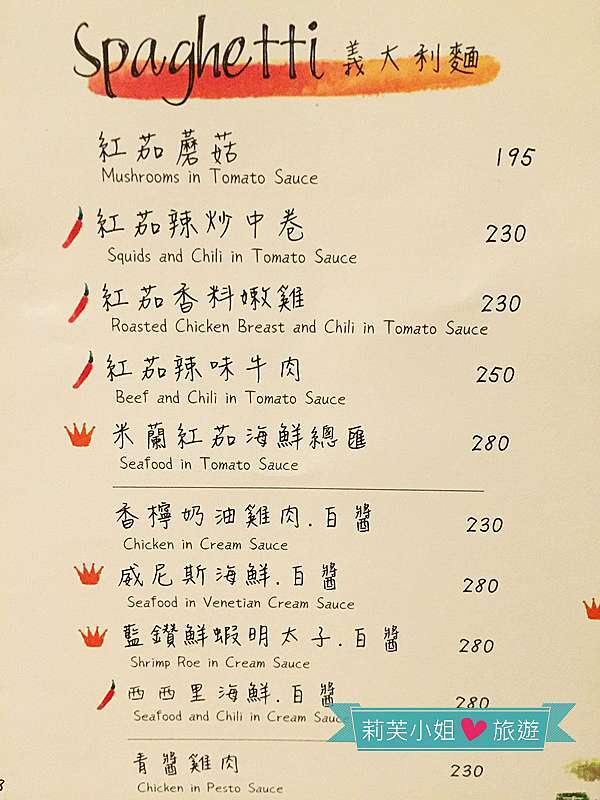 Spaghetti 義大利麵
紅茄蘑菇 195
Mushrooms in Tomato Sauce
紅茄辣炒中卷 230
Squids and Chili in Tomato Sauce
紅茄香料嫩雞 230
Roasted Chicken Breast and Chili in Tomato Sauce
紅茄辣味牛肉 250
Beef and Chili in Tomato Sauce
米蘭紅茄海鮮總匯 280
Seafood in Tomato Sauce
香檸奶油雞肉.白醬 230
Chicken in Cream Sauce
威尼斯海鮮.白醬 280
Seafood in Venetian Cream Sauce
藍鑽鮮蝦明太子.白醬 280
Shrimp Roe in Cream Sauce
西西里海鮮.白醬 280
Seafood and Chili in Cream Sauce
莉芙小姐 旅遊
青醬雞肉 230
Chicken in Pesto Sauce